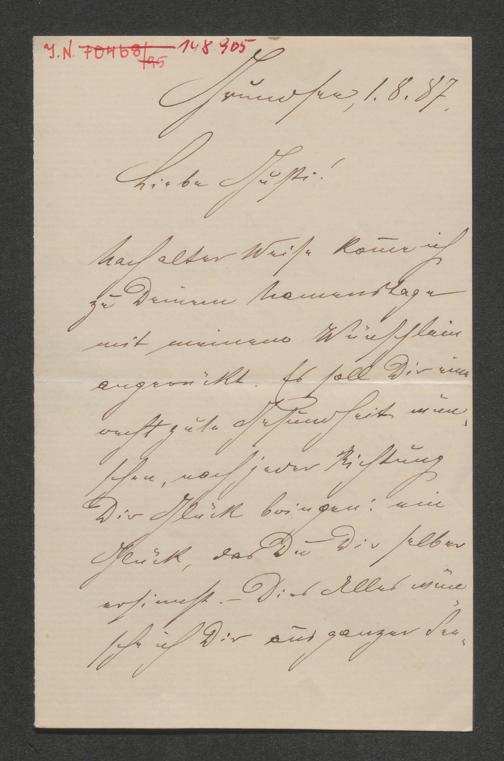 J.N. 70468/95 148905
Grundsee, 1.8.87.
Liebe Justi!
Nach alter Weise kom̅e ich
zu Deinem Namenstage
mit meinem Wünschlein
angerückt. Es soll Dir eine
recht gute Gesundheit wün-
schen, nach jeder Richtung
Dir Glück bringen: ein
Glück, das Du Dir selber
ersinnst. – Dies Alles wün
sche ich Dir aus ganzer See-